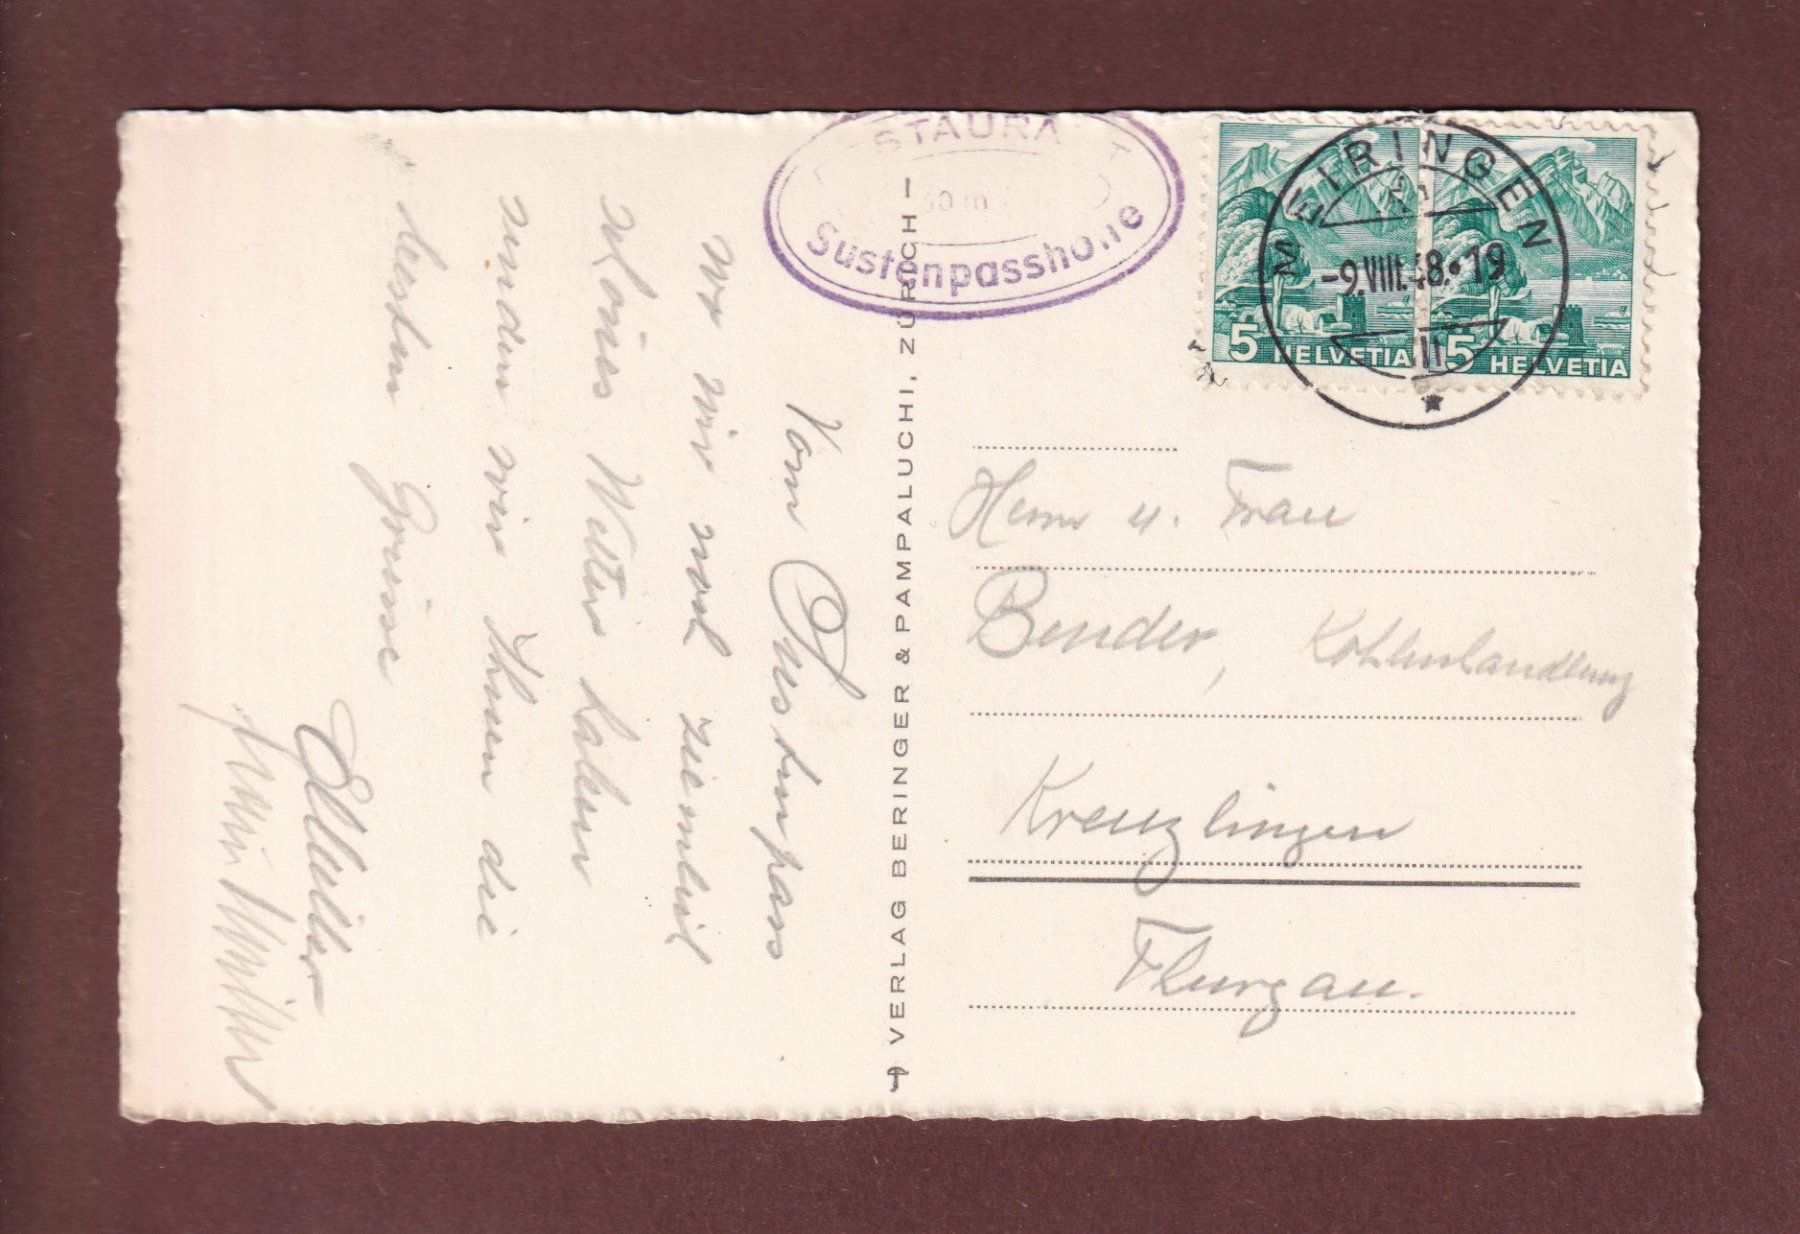 Vom Sustenpass
wo wir noch ziemlich
schönes Wetter haben
senden wir Ihnen die
besten Grüsse
VERLAG BERINGER & PAMPALUCHI, ZÜRICH
Sustenpasshöhe
MEIRINGEN
-9.VIII.48.•19
5 HELVETIA
5 HELVETIA
Herrn u. Frau
Bender, Kohlenhandlung
Kreuzlingen
Thurgau.